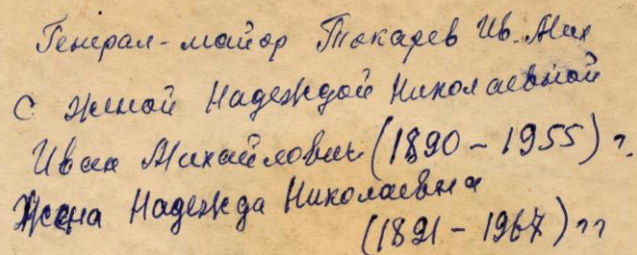 Генерал-майор Токарев Ив. Мих
с женой Надеждой Николаевной
Иван Михайлович (1890 - 1955) г.
Жена Надежда Николаевна
(1891 - 1967) гг